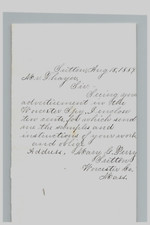 Sutton Aug 18, 1887
Mr. F. Eager
Sir
Seeing your
advertisement in the
Worcester Spy, I inclose
two cents for which send
me the samples and
instructions of your work
and oblige
Address. Mary B. Perry
Sutton
Worcester Co.
Mass.